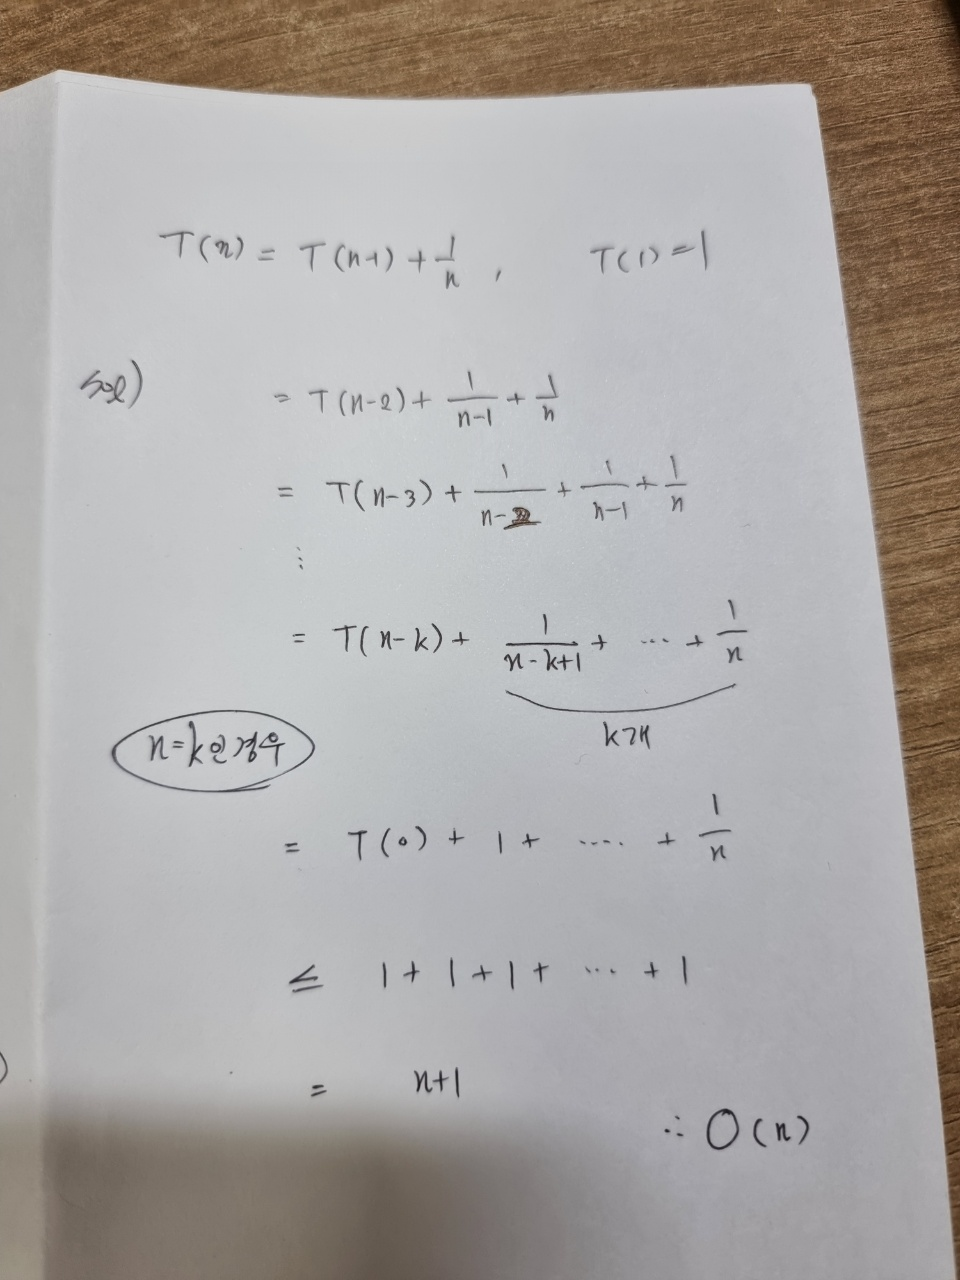 T(n) = T(n-1) + 1/n , T(1) = 1
sol) = T(n-2) + 1/(n-1) + 1/n
= T(n-3) + 1/(n-2) + 1/(n-1) + 1/n
⋮
= T(n-k) + 1/(n-k+1) + ... + 1/n
k개
n=k인경우
= T(0) + 1 + .... + 1/n
≤ 1 + 1 + 1 + ... + 1
= n+1
∴ O(n)